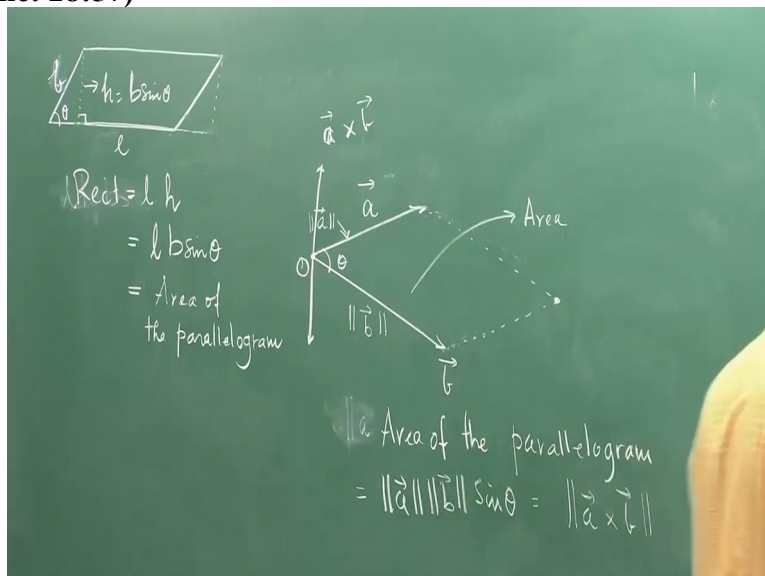 b
→ h = b sinθ
θ
l
Rect = l h
= l b sinθ
= Area of
the parallelogram
a⃗ × b⃗
a⃗
||a⃗||
O
θ
||b⃗||
b⃗
Area
||a Area of the parallelogram
= ||a⃗|| ||b⃗|| Sinθ = ||a⃗ × b⃗||